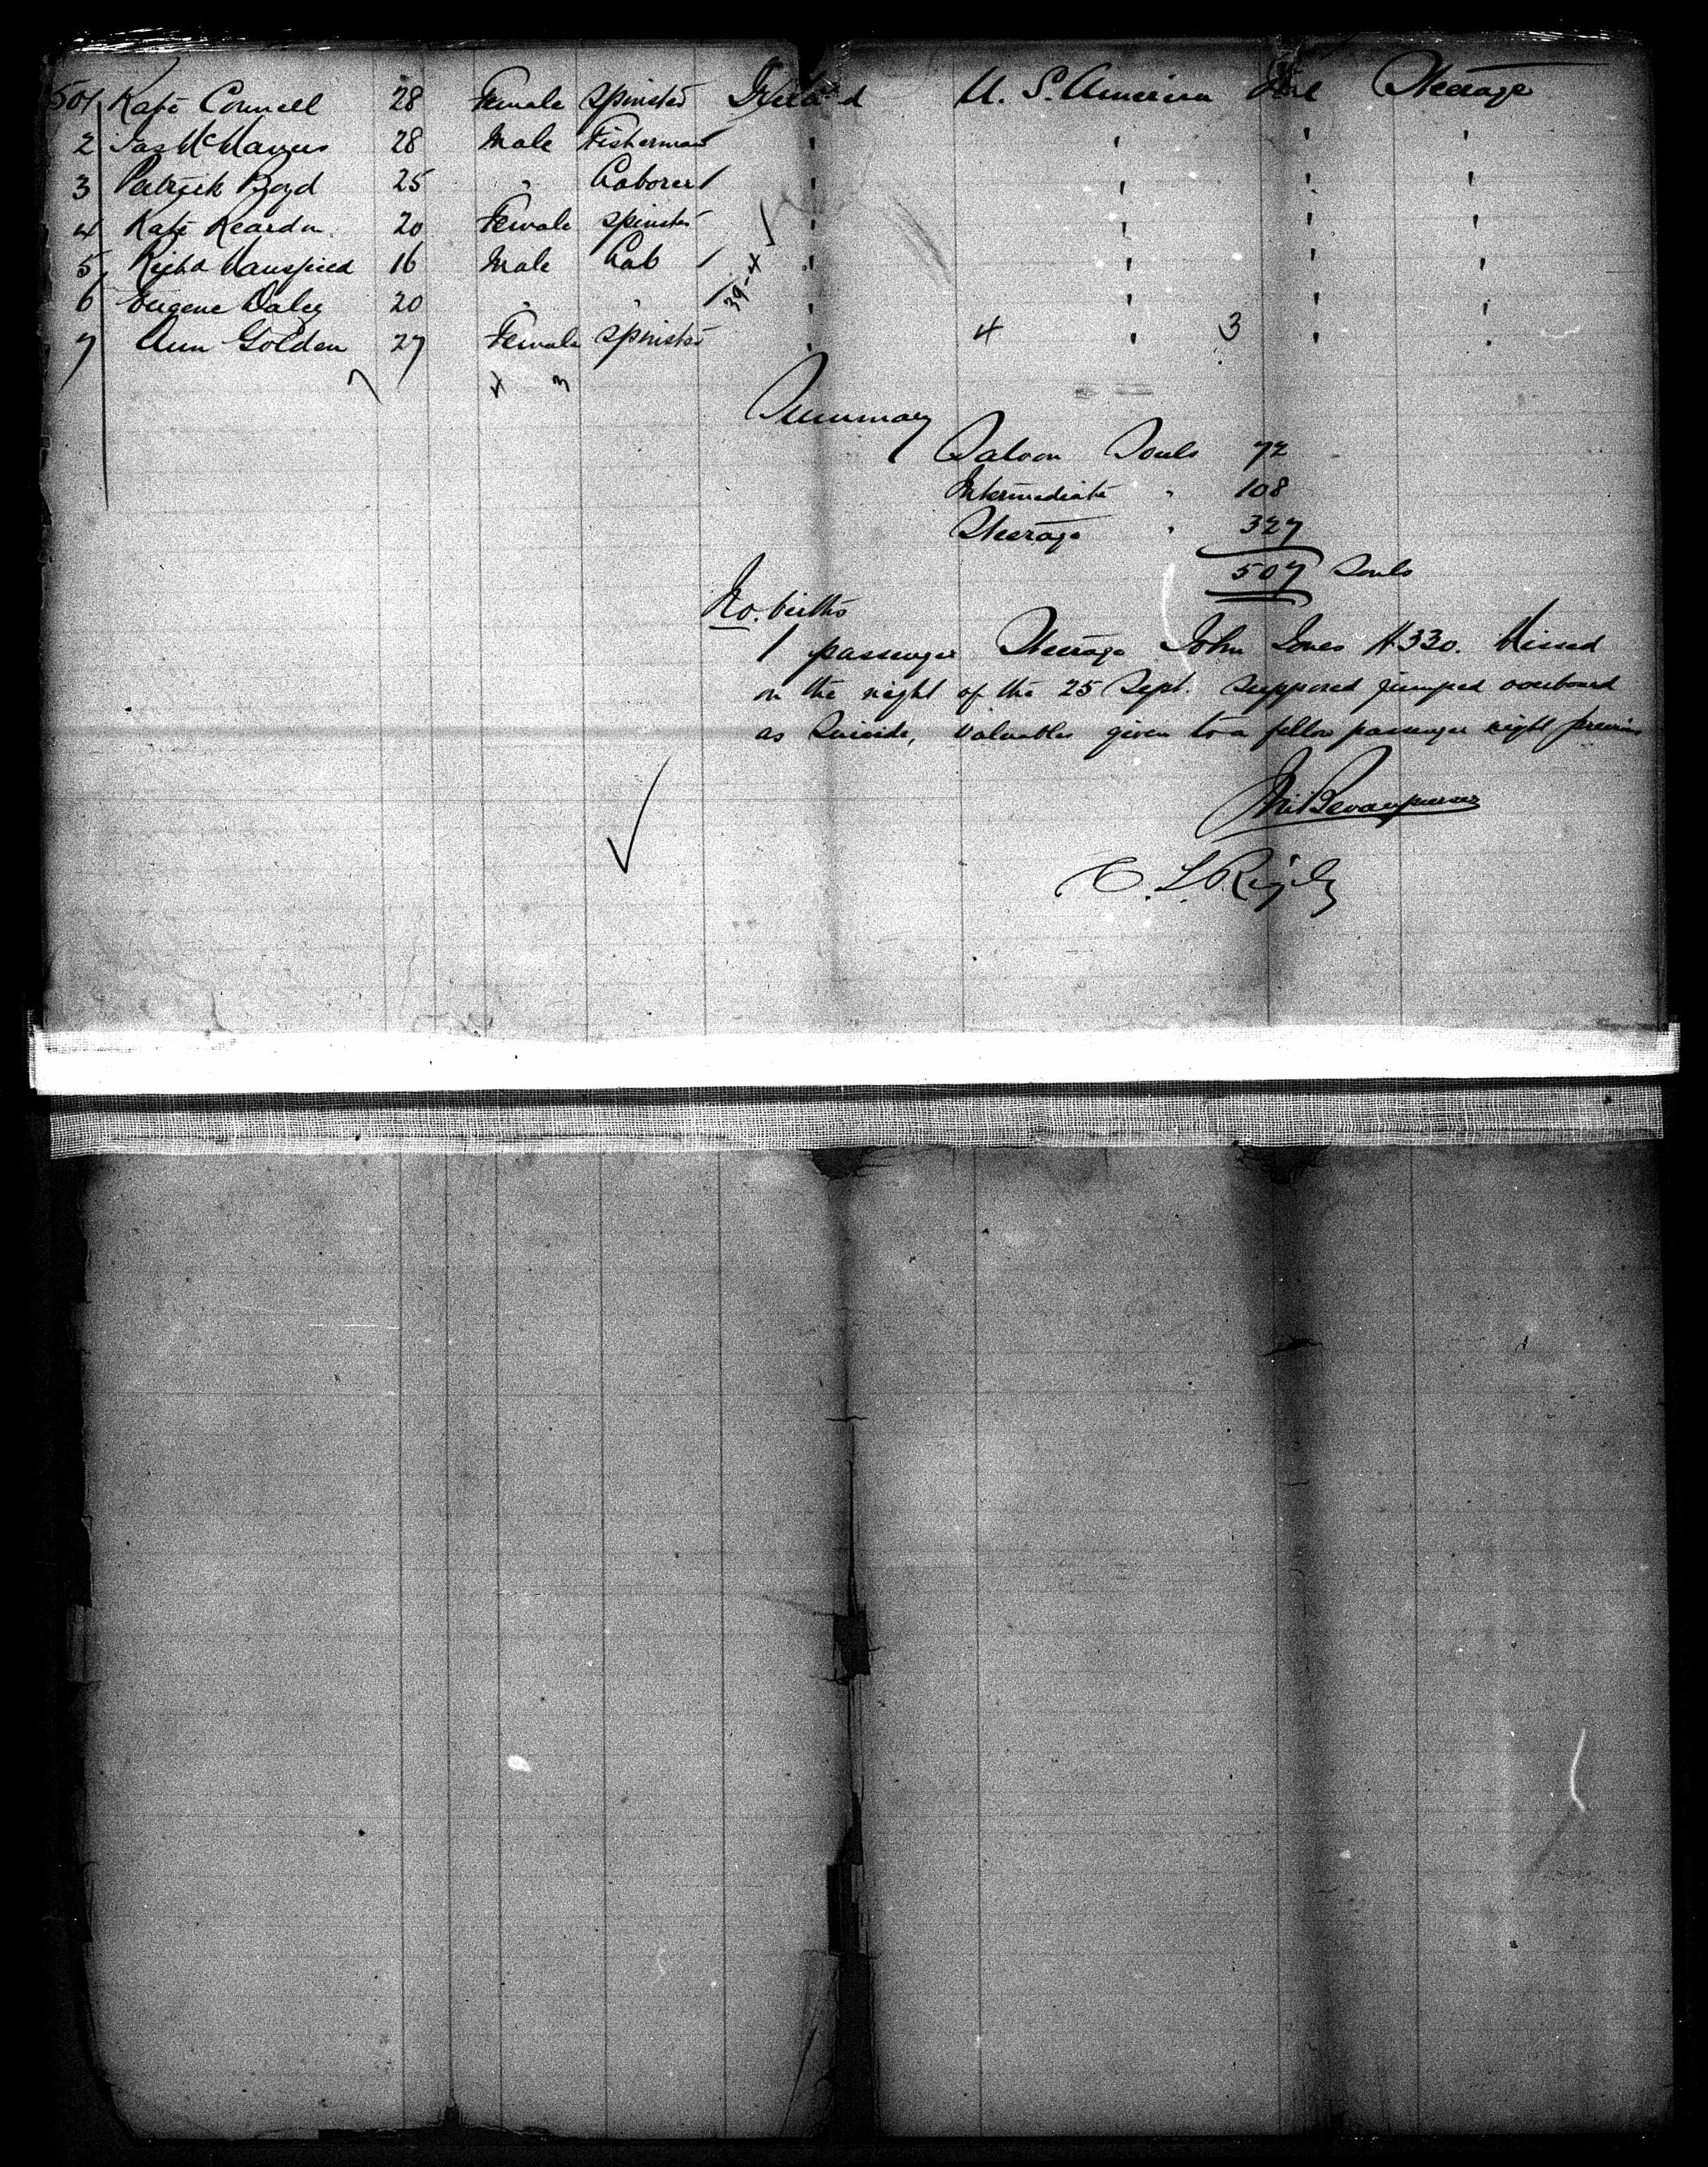 501 Kate Connell 28 Female Spinster Ireland U. S. America Steerage
2 Jas McManus 28 Male Fisherman " " " "
3 Patrick Boyd 25 " Laborer / " " " "
4 Kate Reardon 20 Female Spinster " " " "
5 Richd Mansfield 16 Male Lab / " " " "
6 Eugene Daley 20 " " / 39-4 " " " "
7 Ann Golden 27 Female Spinster " 4 " 3 " "
7 4 3
Summary
Saloon Souls 72
Intermediate " 108
Steerage " 327
507 Souls
No. births
1 passenger Steerage John Jones #330. Missed
on the night of the 25 Sept. Supposed jumped overboard
as Suicide, Valuables given to a fellow passenger night previous
purser